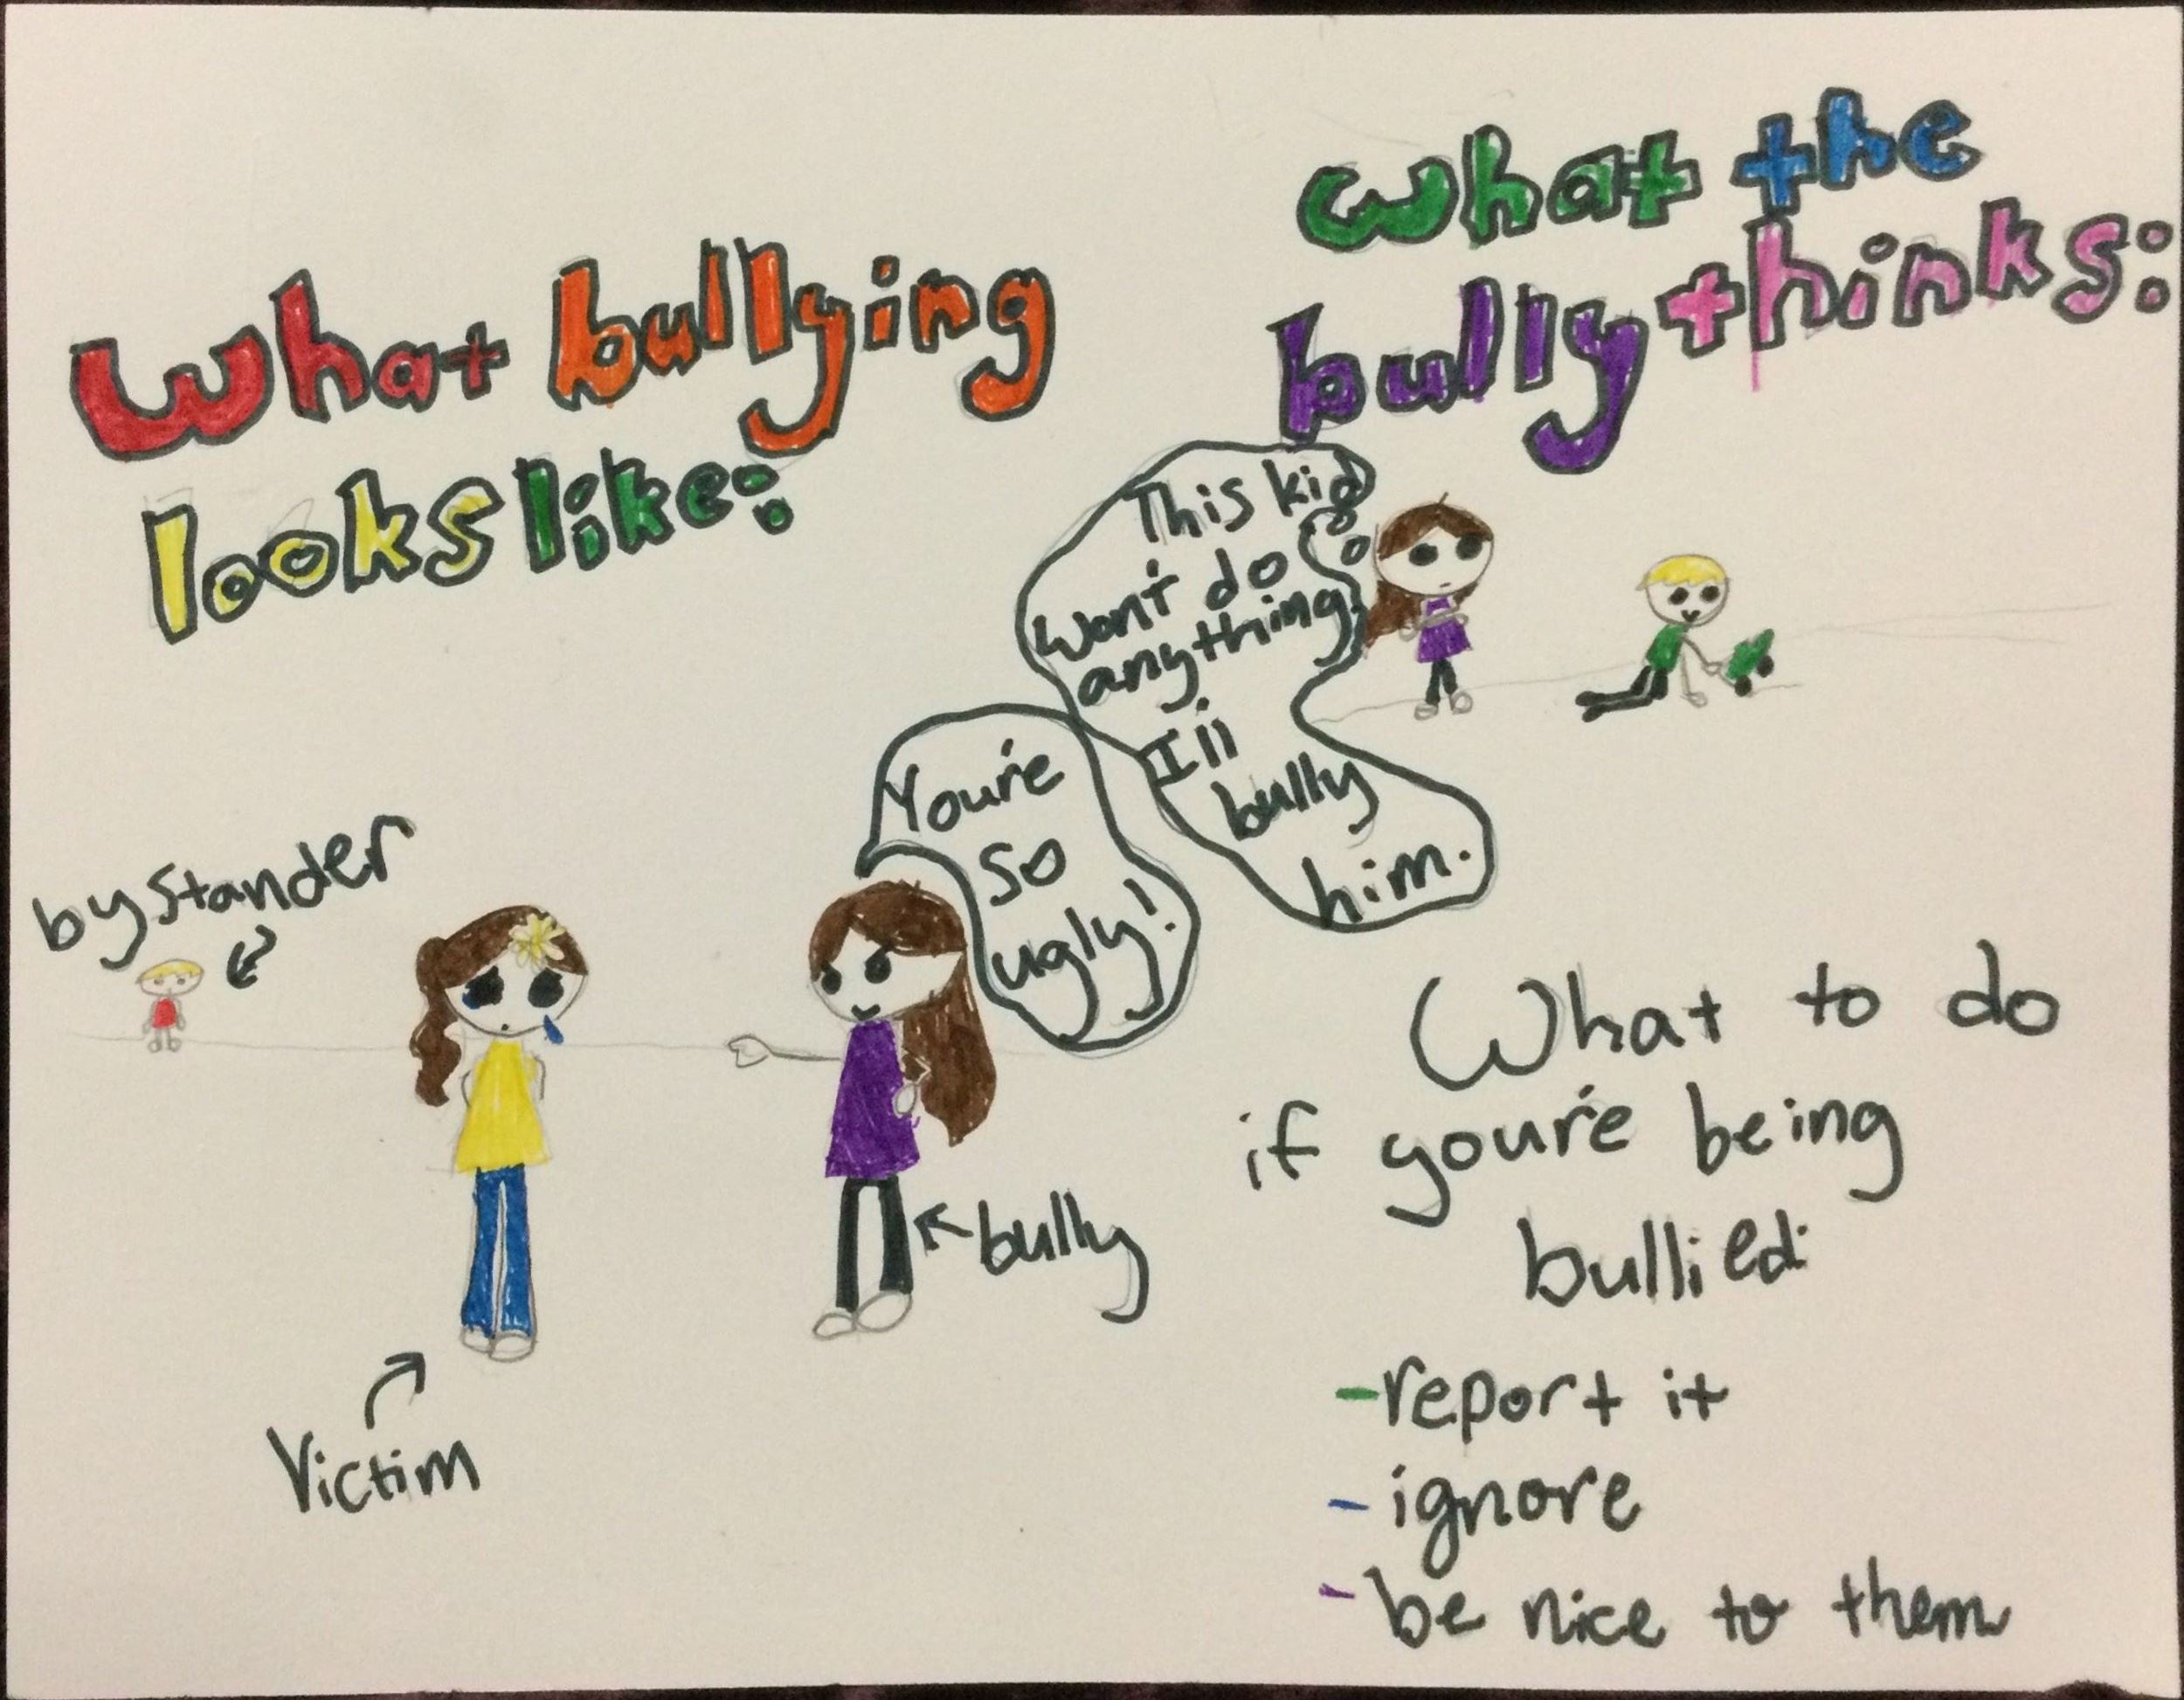 What bullying
looks like:
bystander
Victim
You're
so
ugly!
bully
what the
bully thinks:
This kid
won't do
anything.
I'll
bully
him.
What to do
if you're being
bullied:
-report it
-ignore
-be nice to them